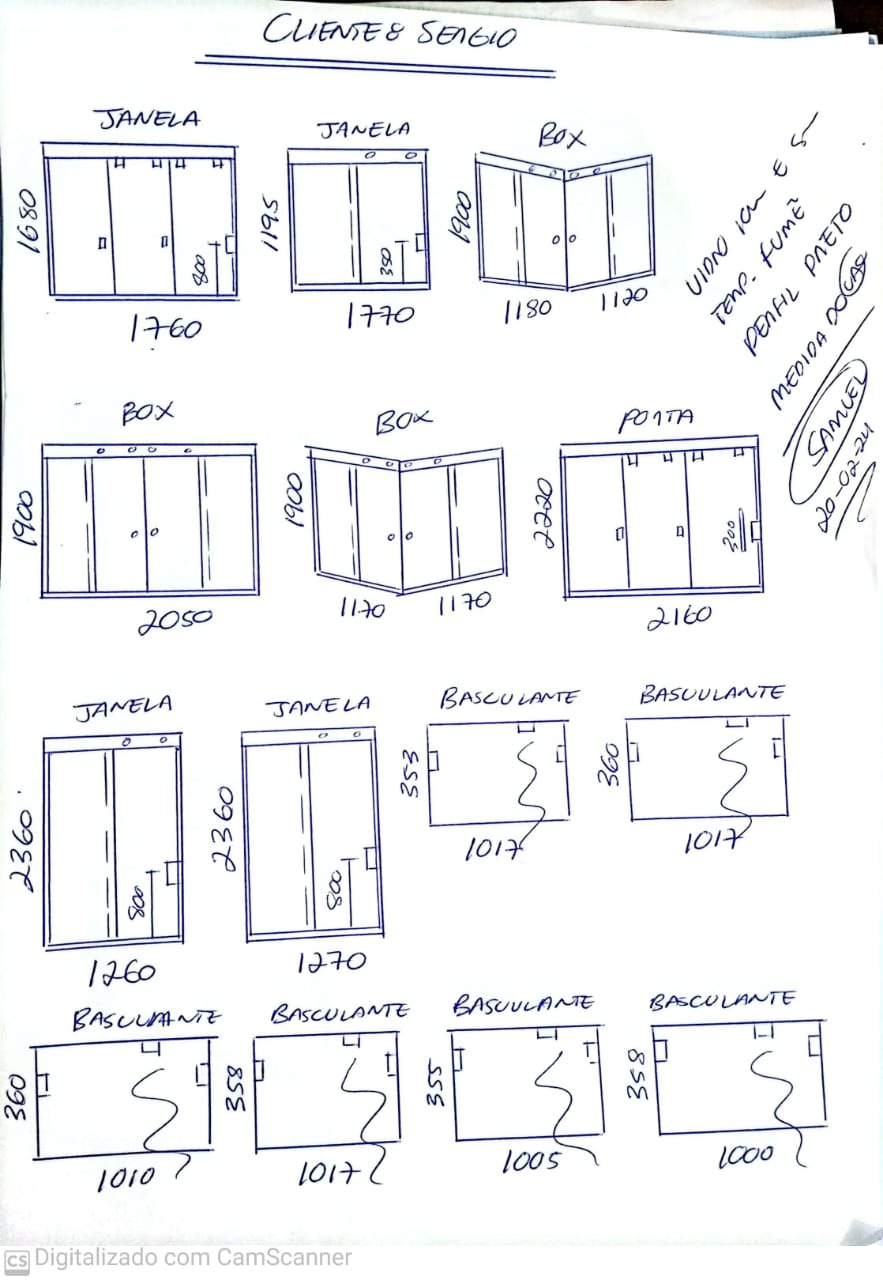 CLIENTE: SERGIO
JANELA
1680
800
1760
JANELA
1195
350
1770
BOX
1900
1180
1120
TEMP. FUMÊ
PERFIL PRETO
MEDIDA DO
SAMUEL
20-02-24
BOX
1900
2050
BOX
1900
1170
1170
PORTA
2220
300
2160
JANELA
2360
800
1260
JANELA
2360
800
1270
BASCULANTE
353
1017
BASUULANTE
360
1017
BASCULANTE
360
1010
BASCULANTE
358
1017
BASUULANTE
355
1005
BASCULANTE
358
1000
CS Digitalizado com CamScanner